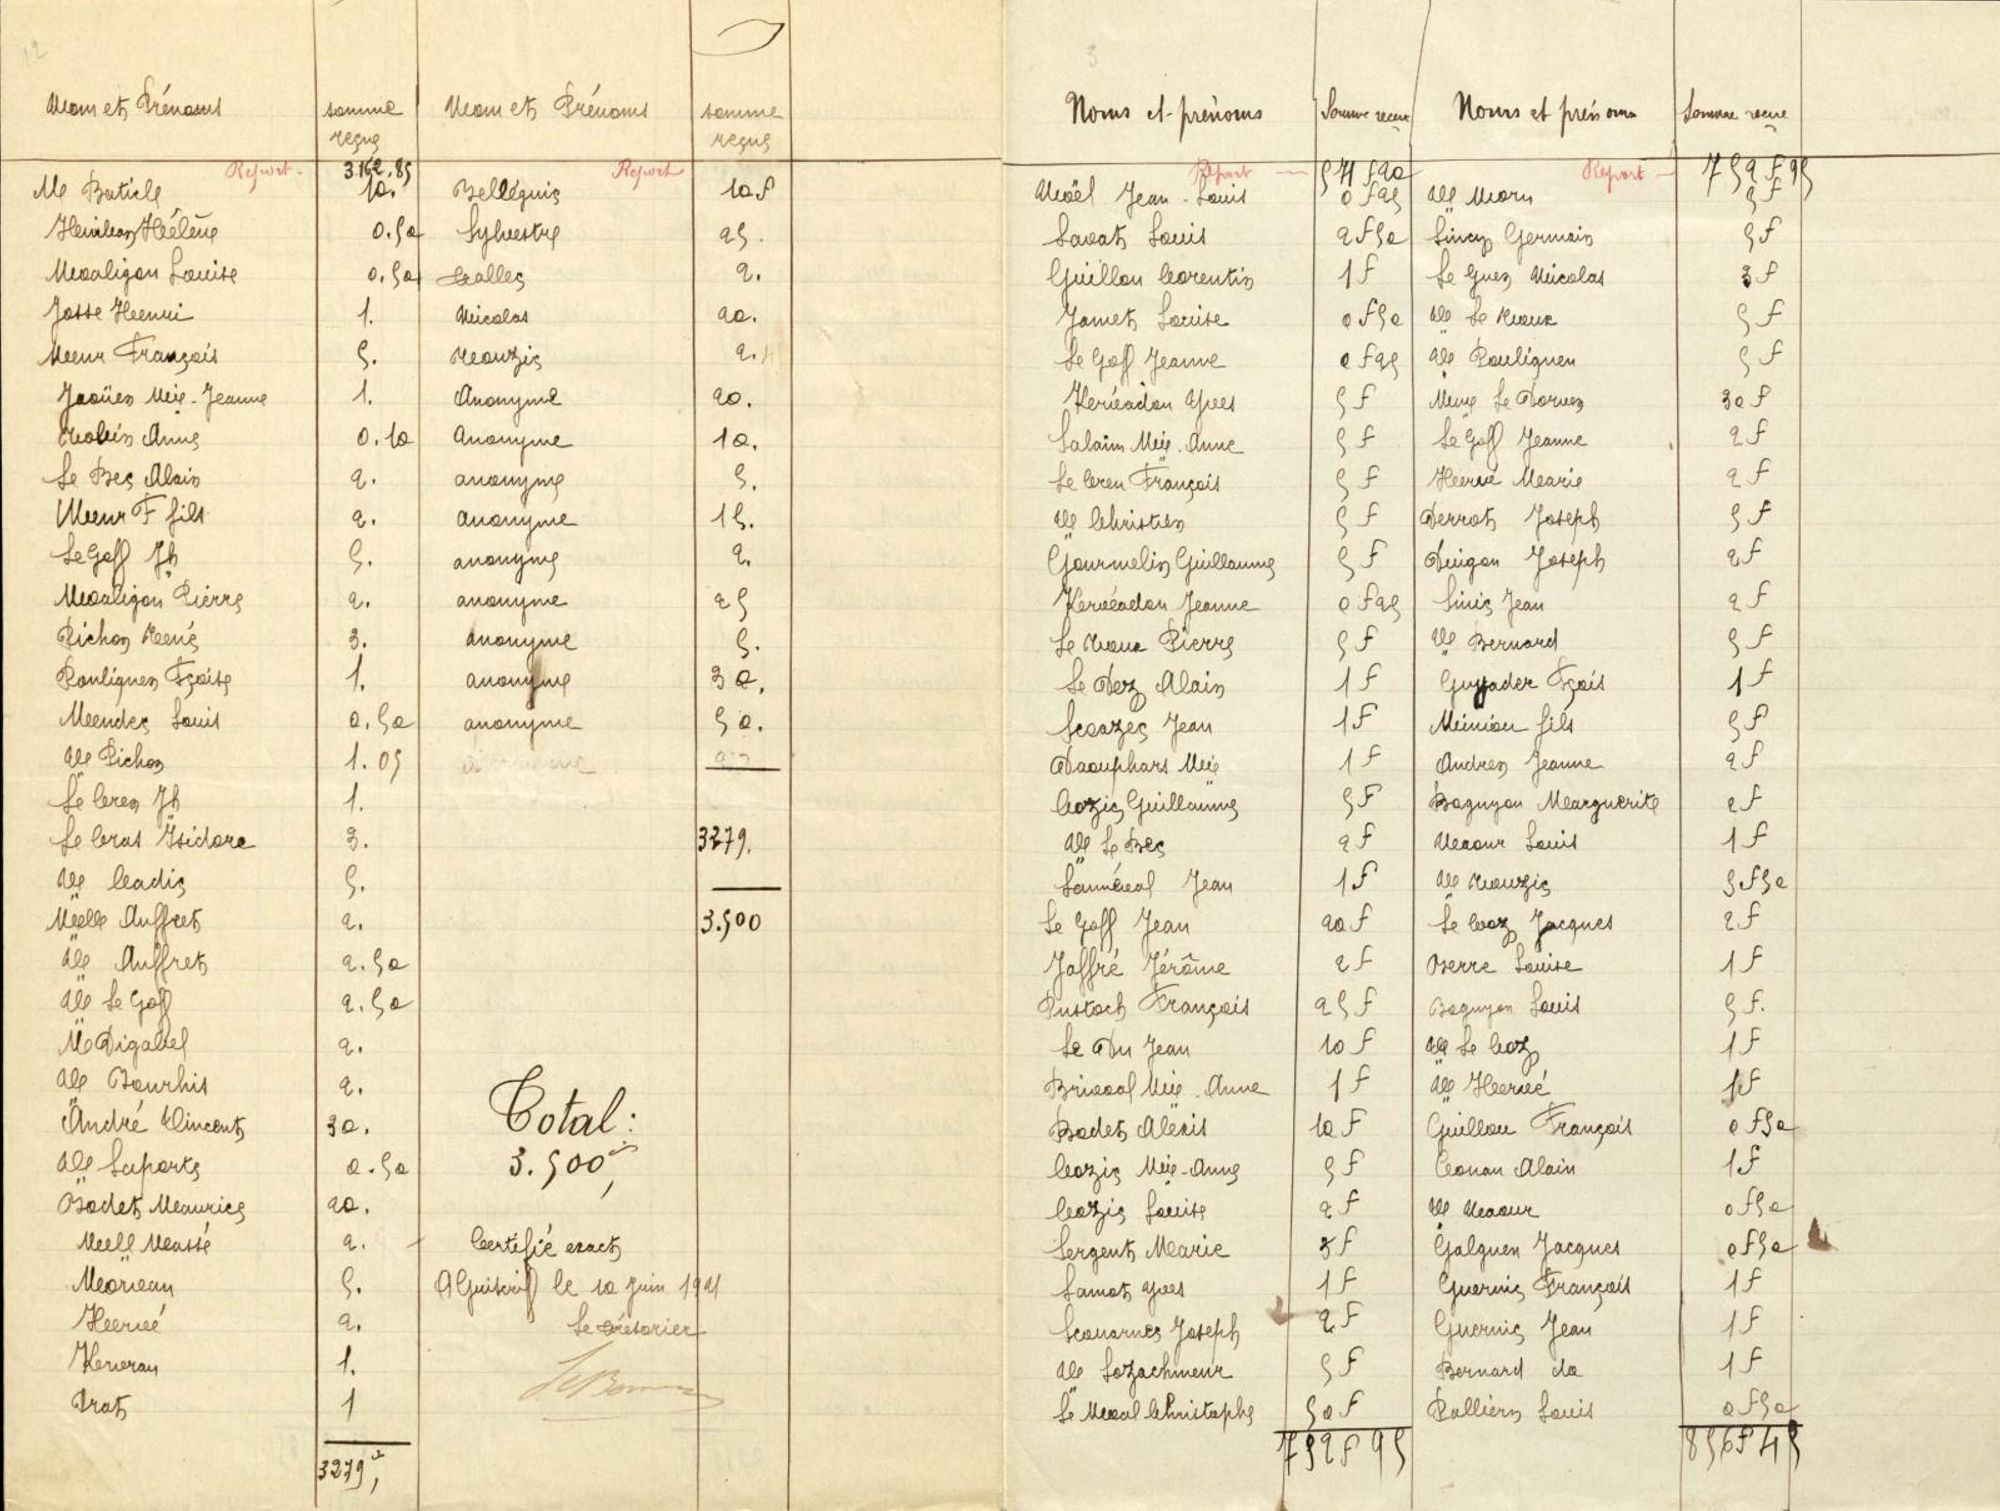 12
Noms et Prénoms | somme reçue | Noms et Prénoms | somme reçue
Report. 3.162.85 | Report
Me Baticle 10. | Belléguic 10.f
Hélène 0.50 | Sylvestre 25.
Maaligou Louise 0.50 | Galles 2.
Josse Henri 1. | Nicolas 20.
Meur François 5. | Naouzic 2.
Jaouen Mie-Jeanne 1. | Anonyme 20.
Anne 0.10 | Anonyme 10.
Le Bec Alain 2. | anonyme 5.
Meur F fils 2. | anonyme 15.
Le Goff Jh 5. | anonyme 2.
Maaligou Pierre 2. | anonyme 25
Pichon René 3. | anonyme 5.
Pouliquen Fçoise 1. | anonyme 30.
Mendec Louis 0.50 | anonyme 50.
Me Pichon 1.05
Le Cren Jh 1.
Le Cras Isidore 3. | 3279.
Me Cadic 5.
Melle Auffret 2. | 3.500
Me Auffret 2.50
Me Le Goff 2.50
Me Digabel 2.
Me Bourhis 2.
André Vincent 30. | Total:
Me Laporte 0.50 | 3.500f,
Bodet Maurice 20.
Mell Massé 2. | Certifié exact
Morvan 5. | A Guiscriff le 10 juin 1941
Hervé 2. | Le trésorier
Kervran 1.
Prat 1
3279f,
3
Noms et prénoms | Somme reçue | Noms et prénoms | Somme reçue
Report 571 f 20 | Report 752 f 95
Noël Jean-Louis 0 f 25 | Me Morn 5 f
Savat Louis 2 f 50 | Lincy Germain 5 f
Guillou Corentin 1 f | Le Guen Nicolas 3 f
Jamet Louise 0 f 50 | Me Le Roux 5 f
Le Goff Jeanne 0 f 25 | Me Pouliquen 5 f
Kervéadou Yves 5 f | Mme Le Dorven 30 f
Salaün Mie-Anne 5 f | Le Goff Jeanne 2 f
Le Cren François 5 f | Hervé Marie 2 f
Me Christien 5 f | Derrot Joseph 5 f
Gourmelin Guillaume 5 f | Duigou Joseph 2 f
Kervéadou Jeanne 0 f 25 | Jean 2 f
Le Roux Pierre 5 f | Me Bernard 5 f
Le Dez Alain 1 f | Guyader Fçois 1 f
Scoazec Jean 1 f | Miniou fils 5 f
Daouphars Mie 1 f | Andren Jeanne 2 f
Cozic Guillaume 5 f | Baguyon Marguerite 2 f
Me Le Bec 2 f | Maour Louis 1 f
Lannéval Jean 1 f | Me Naouzic 5 f 50
Le Goff Jean 20 f | Le Coz Jacques 2 f
Jaffré Jérôme 2 f | Perre Louise 1 f
Pustoch François 25 f | Baguyon Louis 5 f.
Le Du Jean 10 f | Me Le Coz 1 f
Mie-Anne 1 f | Me Hervé 1 f
Bodet Alexis 10 f | Guillou François 0 f 50
Cozic Mie-Anne 5 f | Conan Alain 1 f
Cozic Louise 2 f | Me Maour 0 f 50
Sergent Marie 5 f | Galguen Jacques 0 f 50
Lamot Yves 1 f | Guernic François 1 f
Scouarnec Joseph 2 f | Guernic Jean 1 f
Me Lozachmeur 5 f | Bernard do 1 f
Le Moal Christophe 50 f | Palliern Louis 0 f 50
752 f 95 | 856 f 45